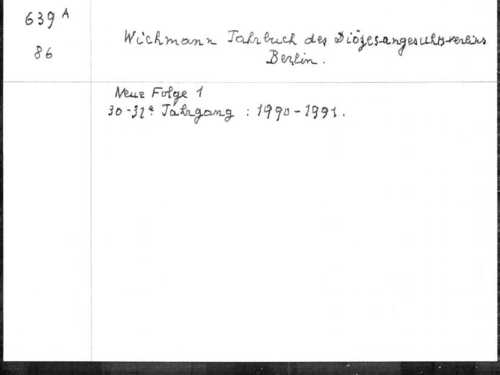 639 A
86
Wichmann Jahrbuch des Diözesangeschtsvereins
Berlin.
Neue Folge 1
30-31e Jahrgang : 1990-1991.